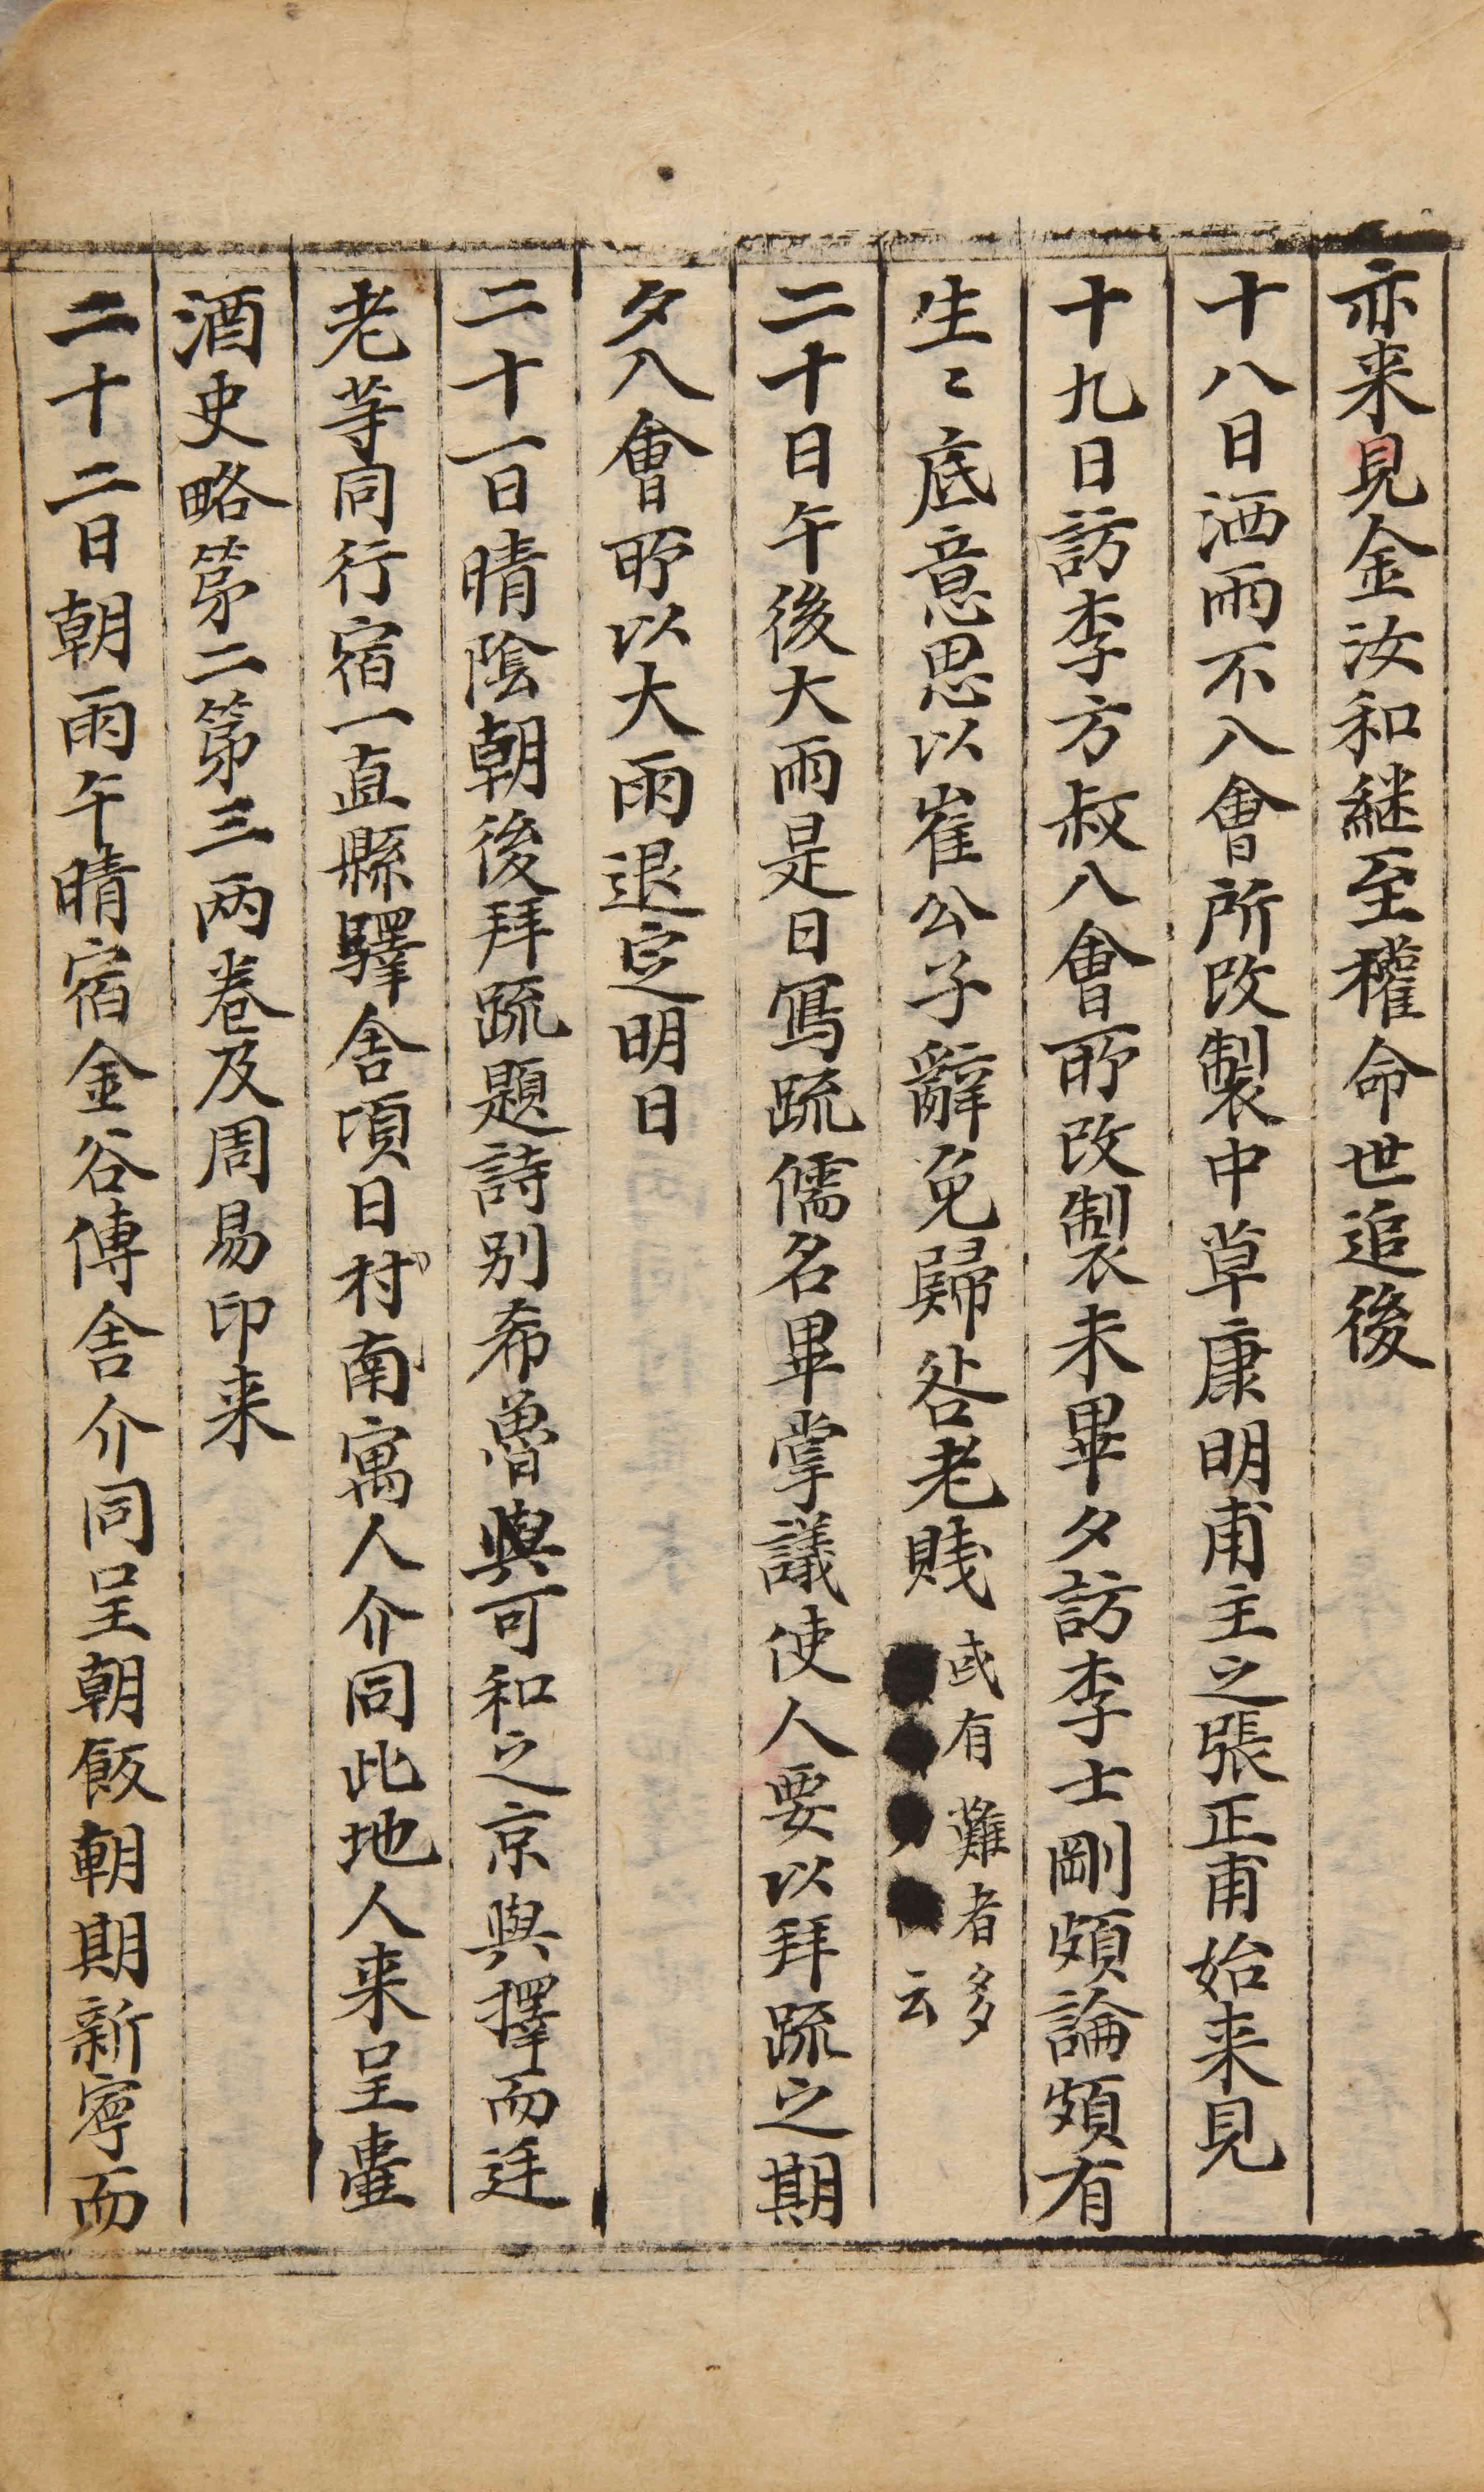 亦来見金汝和継至權命世追後
十八日洒雨不入會所改製中草康明甫主之張正甫始来見
十九日訪李方叔入會所改製未畢夕訪李士剛頗論頗有
生〻底意思以崔公子辭免歸咎老賤
或有難者多
云
二十日午後大雨是日寫疏儒名畢掌議使人要以拜疏之期
夕入會所以大雨退定明日
二十一日晴陰朝後拜疏題詩别希魯與可和之京與擇而廷
老等同行宿一直縣驛舍頃日村南寓人介同此地人来呈壷
酒史略第二第三两卷及周易印来
二十二日朝雨午晴宿金谷傳舍介同呈朝飯朝期新寧而